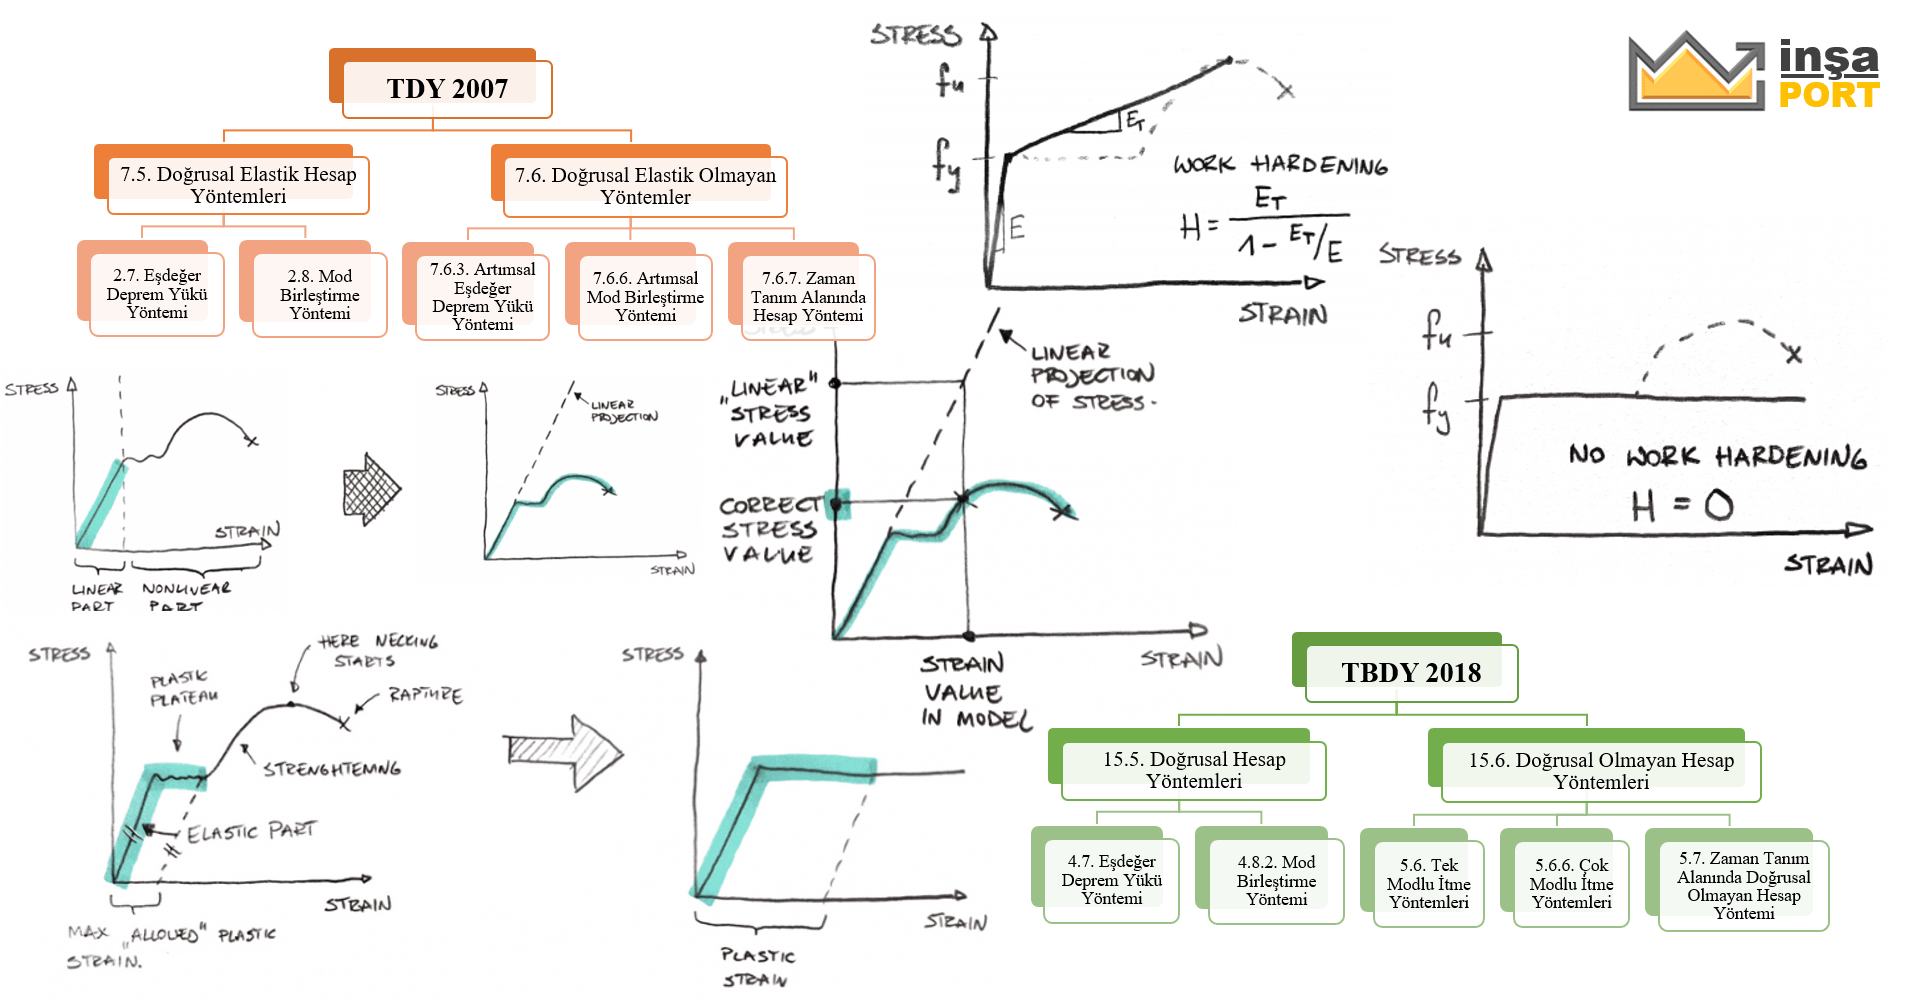 TDY 2007
7.5. Doğrusal Elastik Hesap
Yöntemleri
7.6. Doğrusal Elastik Olmayan
Yöntemler
2.7. Eşdeğer
Deprem Yükü
Yöntemi
2.8. Mod
Birleştirme
Yöntemi
7.6.3. Artımsal
Eşdeğer
Deprem Yükü
Yöntemi
7.6.6. Artımsal
Mod Birleştirme
Yöntemi
7.6.7. Zaman
Tanım Alanında
Hesap Yöntemi
STRESS
fu
fy
E
ET
WORK HARDENING
H = ET / 1 - ET/E
STRAIN
inşa
PORT
STRESS
fu
fy
NO WORK HARDENING
H = 0
STRAIN
STRESS
STRAIN
LINEAR
PART
NONLINEAR
PART
STRESS
LINEAR
PROJECTION
STRAIN
„LINEAR"
STRESS
VALUE
LINEAR
PROJECTION
OF STRESS.
CORRECT
STRESS
VALUE
STRAIN
STRAIN
VALUE
IN MODEL
STRESS
PLASTIC
PLATEAU
HERE NECKING
STARTS
RAPTURE
STRENGHTEMNG
ELASTIC PART
STRAIN
MAX „ALLOUED" PLASTIC
STRAIN.
STRESS
STRAIN
PLASTIC
STRAIN
TBDY 2018
15.5. Doğrusal Hesap
Yöntemleri
15.6. Doğrusal Olmayan Hesap
Yöntemleri
4.7. Eşdeğer
Deprem Yükü
Yöntemi
4.8.2. Mod
Birleştirme
Yöntemi
5.6. Tek
Modlu İtme
Yöntemleri
5.6.6. Çok
Modlu İtme
Yöntemleri
5.7. Zaman Tanım
Alanında Doğrusal
Olmayan Hesap
Yöntemi